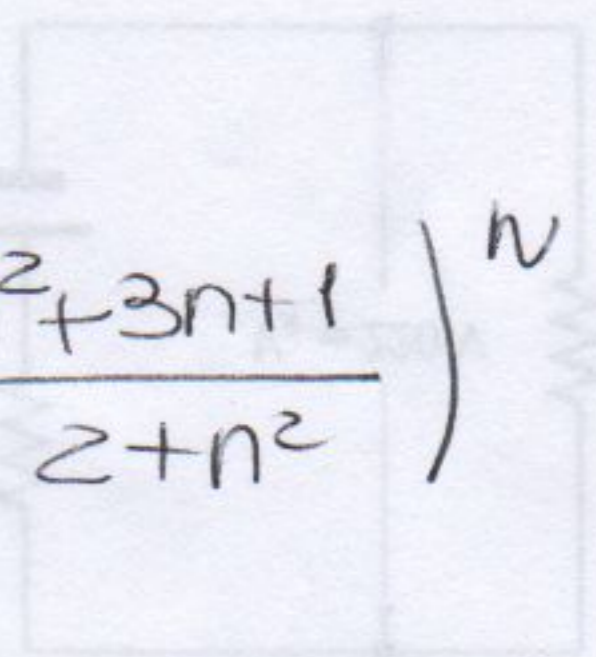 ²+3n+1
2+n²
)ⁿ